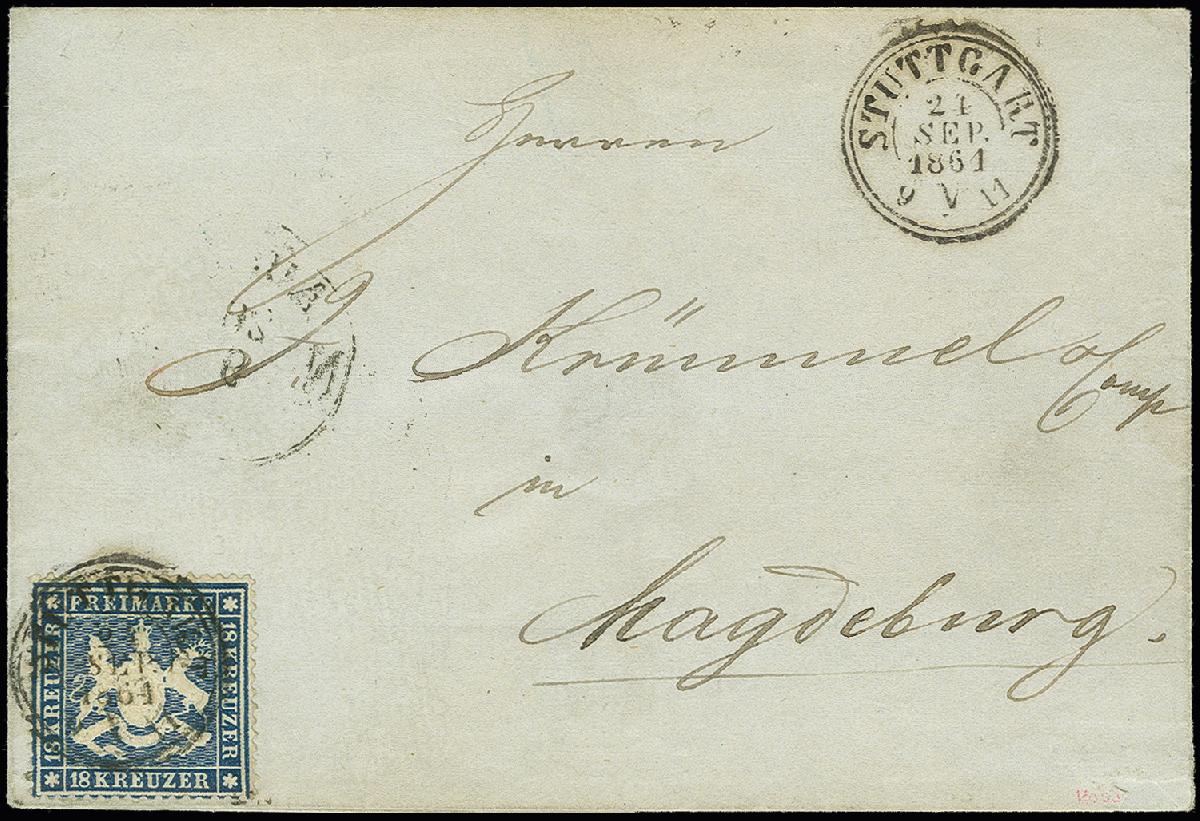 STUTTGART
24
SEP.
1864
9 V 11
Herren
F. Krümmel & Comp
in
Magdeburg.
FREIMARKE
18 KREUZER
18 KREUZER
18 KREUZER
SEP
1864